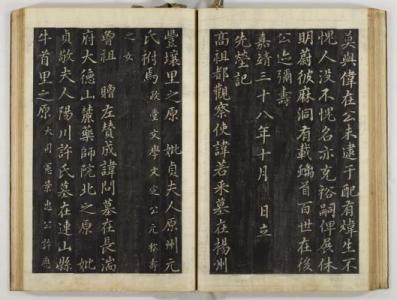 莫與偉在公未逮于配有煒生不
愧人沒不愧名亦克裕嗣俾展休
明蔚彼麻洞有載螭首百世在後
公迄彌壽
嘉靖三十八年十月 日立
先塋記
高祖都觀察使諱若采墓在楊州
豐壤里之原 妣貞夫人原州元
氏祔焉 政堂文學文定公元松壽
之女
曾祖 贈左贊成諱問墓在長湍
府大德山麓藥師院北之原 妣
貞敬夫人陽川許氏墓在連山縣
牛首里之原 大司憲 公許